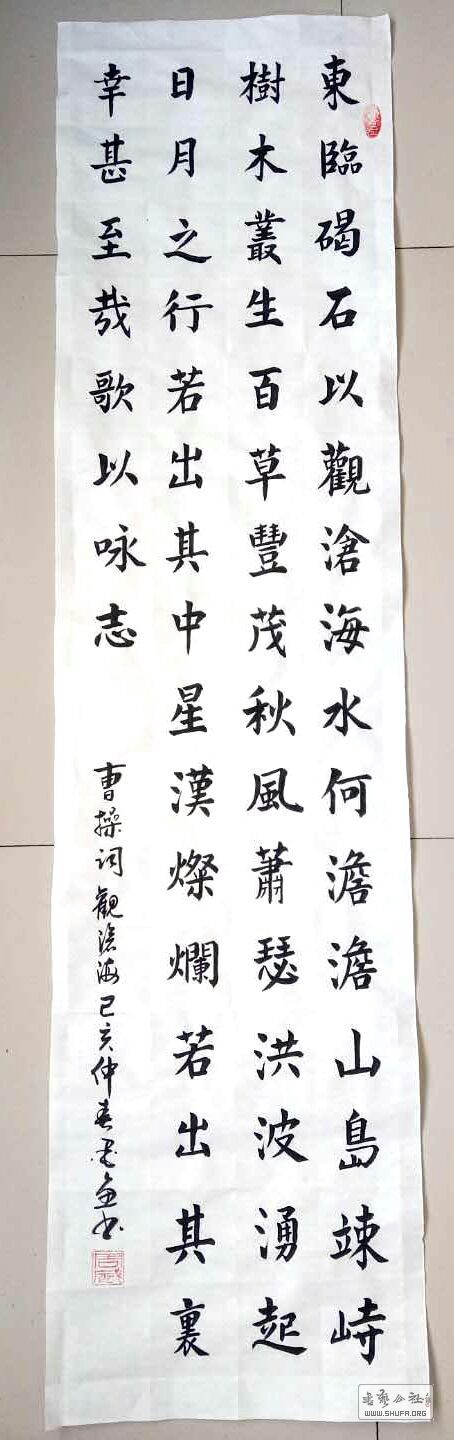 東臨碣石以觀滄海水何澹澹山島竦峙
樹木叢生百草豐茂秋風蕭瑟洪波湧起
日月之行若出其中星漢燦爛若出其裏
幸甚至哉歌以咏志
曹操詞觀滄海己亥仲春
書藝公社
WWW.SHUFA.ORG